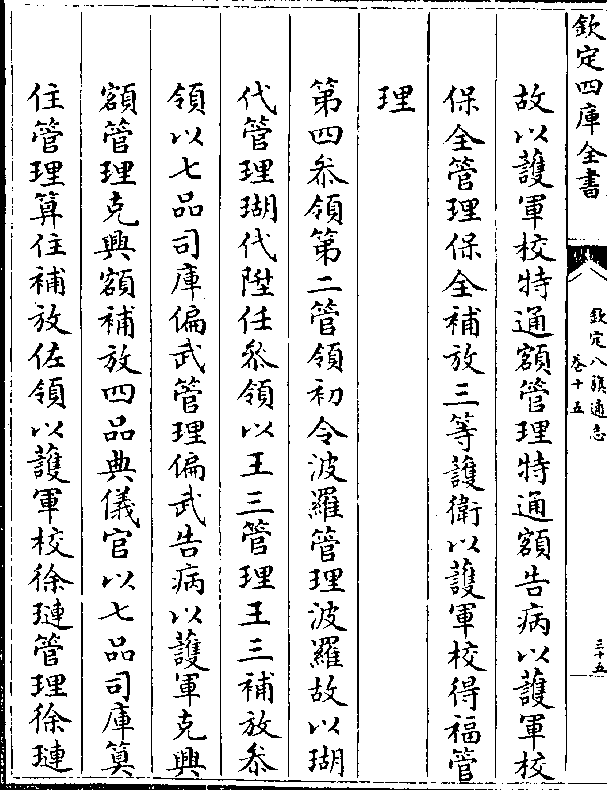 欽定四庫全書
欽定八旗通志
卷十五
三十五
故以護軍校特通額管理特通額告病以護軍校
保全管理保全補放三等護衛以護軍校得福管
理
第四叅領第二管領初令波羅管理波羅故以瑚
代管理瑚代陞任叅領以王三管理王三補放叅
領以七品司庫偏武管理偏武告病以護軍克興
額管理克興額補放四品典儀官以七品司庫算
住管理算住補放佐領以護軍校徐璉管理徐璉